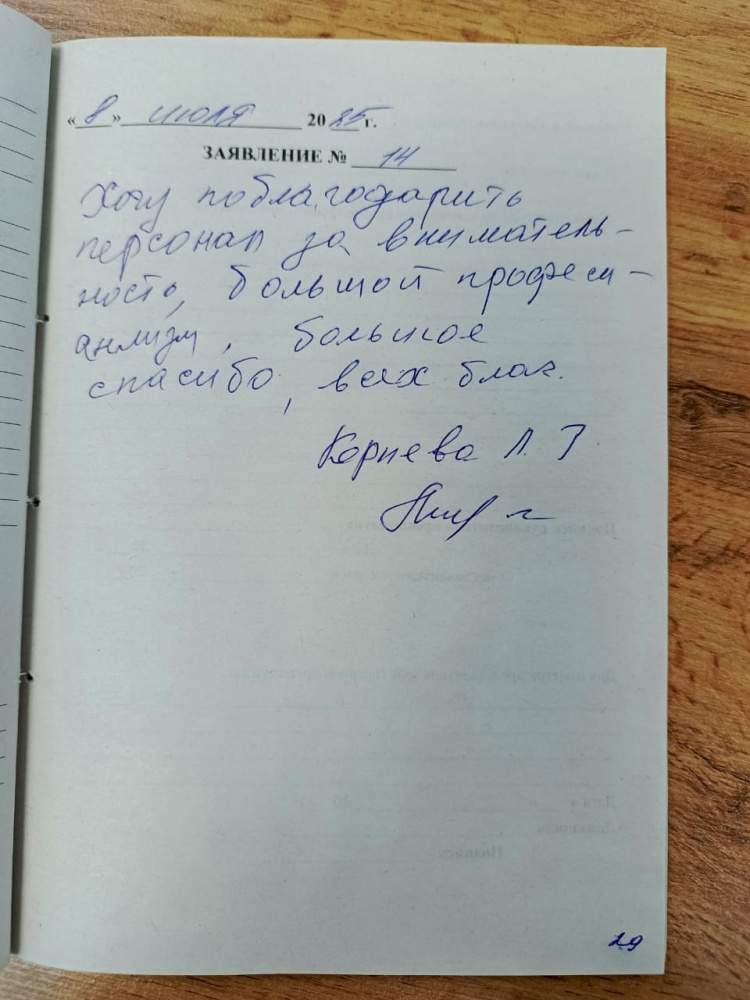 « 8 » июля 2025 г.
ЗАЯВЛЕНИЕ № 14
Хочу поблагодарить
персонал за вниматель-
ность, большой професси-
анлизм, большое
спасибо, всех благ.
Корнева Л. Г
29